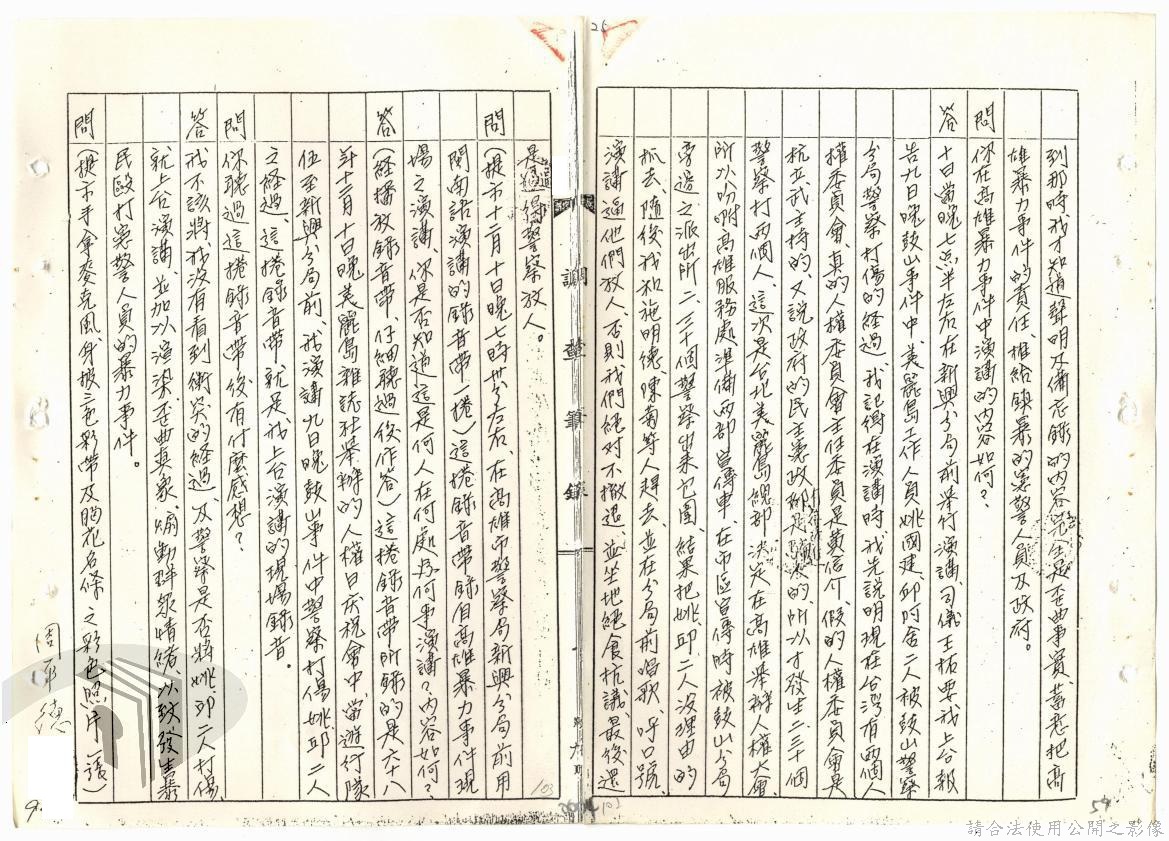 到那時我才知道聲明及備忘錄的內容完全是歪曲事實、蓄意把高
雄暴力事件的責任推給鎮暴的憲警人員及政府。
問 你在高雄暴力事件中演講的內容如何?
答 十日當晚七点半左右在新興分局前舉行演講、司儀王拓要我上台報
告九日晚鼓山事件中美麗島工作人員姚國建、邱阿舍二人被鼓山警察
分局警察打傷的經過、我記得在演講時我先說明現在台灣有兩個人
權委員會、真的人權委員會主任委員是黃信介、假的人權委員會是
杭立武主持的、又說政府的民主憲政都是 的、所以才發生二、三十個
警察打兩個人、這次是台北美麗島總部決定在高雄舉辦人權大會、
所以吩咐高雄服務處準備兩部宣傳車、在市區宣傳時被鼓山分局
旁邊之派出所二、三十個警察出來包圍、結果把姚、邱二人沒理由的
抓去、隨後我和施明德、陳菊等人趕去、並在分局前唱歌、呼口號、
演講逼他們放人、否則我們絕对不撤退、並坐地絕食抗議、最後還
是逼得警察放人。
問 (提示十二月十日晚七時卅分左右、在高雄市警察局新興分局前用
閩南話演講的錄音帶一捲)這捲錄音帶錄自高雄暴力事件現
場之演講、你是否知道這是何人在何處為何事演講?內容如何?
答 (經播放錄音帶、仔細聽過後作答)這捲錄音帶所錄的是六十八
年十二月十日晚美麗島雜誌社舉辦的人權日庆祝會中、當遊行隊
伍至新興分局前、我演講九日晚鼓山事件中警察打傷姚邱二人
之經過、這捲錄音帶就是我上台演講的現場錄音。
問 你聽過這捲錄音帶後有什麼感想?
答 我不該將我沒有看到衝突的經過、及警察是否將姚、邱二人打傷、
就上台演講、並加以渲染、歪曲真象、煽動群衆情緒以致發生暴
民毆打憲警人員的暴力事件。
問 (提示手拿麥克風、身披三色彩帶及胸花名條之彩色照片一張)
調查筆錄
周平德
103
102
9.
請合法使用公開之影像